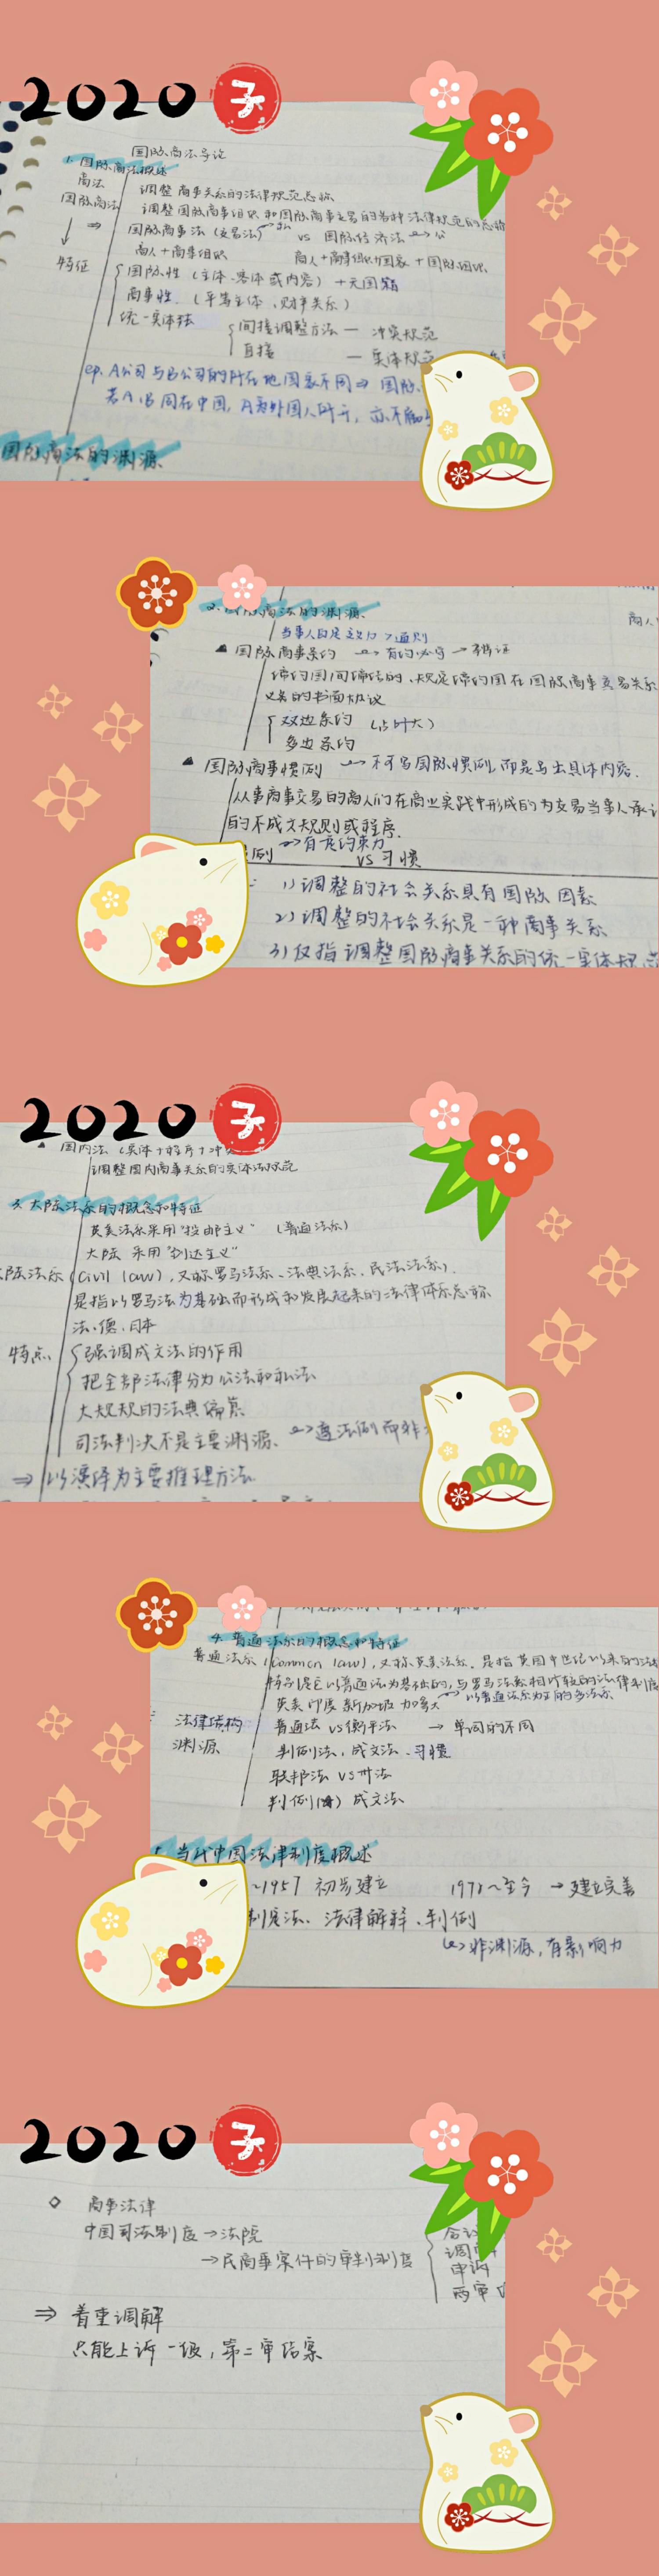 2020 子
国际商法导论
1. 国际商法概述
商法 调整商事关系的法律规范总称
国际商法 调整国际商事组织和国际商事交易的各种法律规范的总称
⇒ 国际商事法（交易法） vs 国际经济法
商人+商事组织 商人+商事组织+国家+国际组织
特征 国际性（主体、客体或内容）
商事性（平等主体、财产关系）
统一实体法 间接调整方法 — 冲突规范
直接 — 实体规范
eg. A公司与B公司的所在地国家不同⇒国际
若A、B同在中国，A为外国人所开，亦不
国际商法的渊源
商法的渊源
▲ 国际商事条约 → 有约必守
缔约国间缔结的、规定缔约国在国际商事交易关系
义务的书面协议
双边条约（占大）
多边条约
▲ 国际商事惯例 不可写国际惯例，而是写出具体内容．
从事商事交易的商人们在商业实践中形成的为交易当事人承认
的不成文规则或程序．
惯例 → 有一定约束力
vs 习惯
1）调整的社会关系具有国际因素
2）调整的社会关系是一种商事关系
3）仅指调整国际商事关系的统一实体规范
2020 子
▲ 国内法（实体+程序+冲
调整国内商事关系的实体法规范
3. 大陆法系的概念和特征
英美法系采用“投邮主义”（普通法系）
大陆 采用“到达主义”
大陆法系（civil law），又称罗马法系、法典法系、民法法系）．
是指以罗马法为基础而形成和发展起来的法律体系总称
法、德、日本
特点 强调成文法的作用
把全部法律分为公法和私法
大规模的法典编纂
司法判决不是主要渊源． → 遵法例而非
⇒ 以演绎为主要推理方法
4. 普通法系的概念和特征
普通法系（common law），又称英美法系，是指英国中世纪以来的法律
特别是它以普通法为基础的，与罗马法系相对较的法律制度
英美 印度 新加坡 加拿大
法律结构 普通法 vs 衡平法 → 单词的不同
渊源 判例法、成文法、习惯
联邦法 vs 州法
判例 成文法
5. 当代中国法律制度概述
~1957 初步建立 1978~至今 → 建立完善
制定法、法律解释、判例
↳ 非渊源，有影响力
2020 子
◇ 商事法律
中国司法制度 → 法院
→ 民商事案件的审判制度
合议
调解
申诉
两审
⇒ 着重调解
只能上诉一级，第二审结案